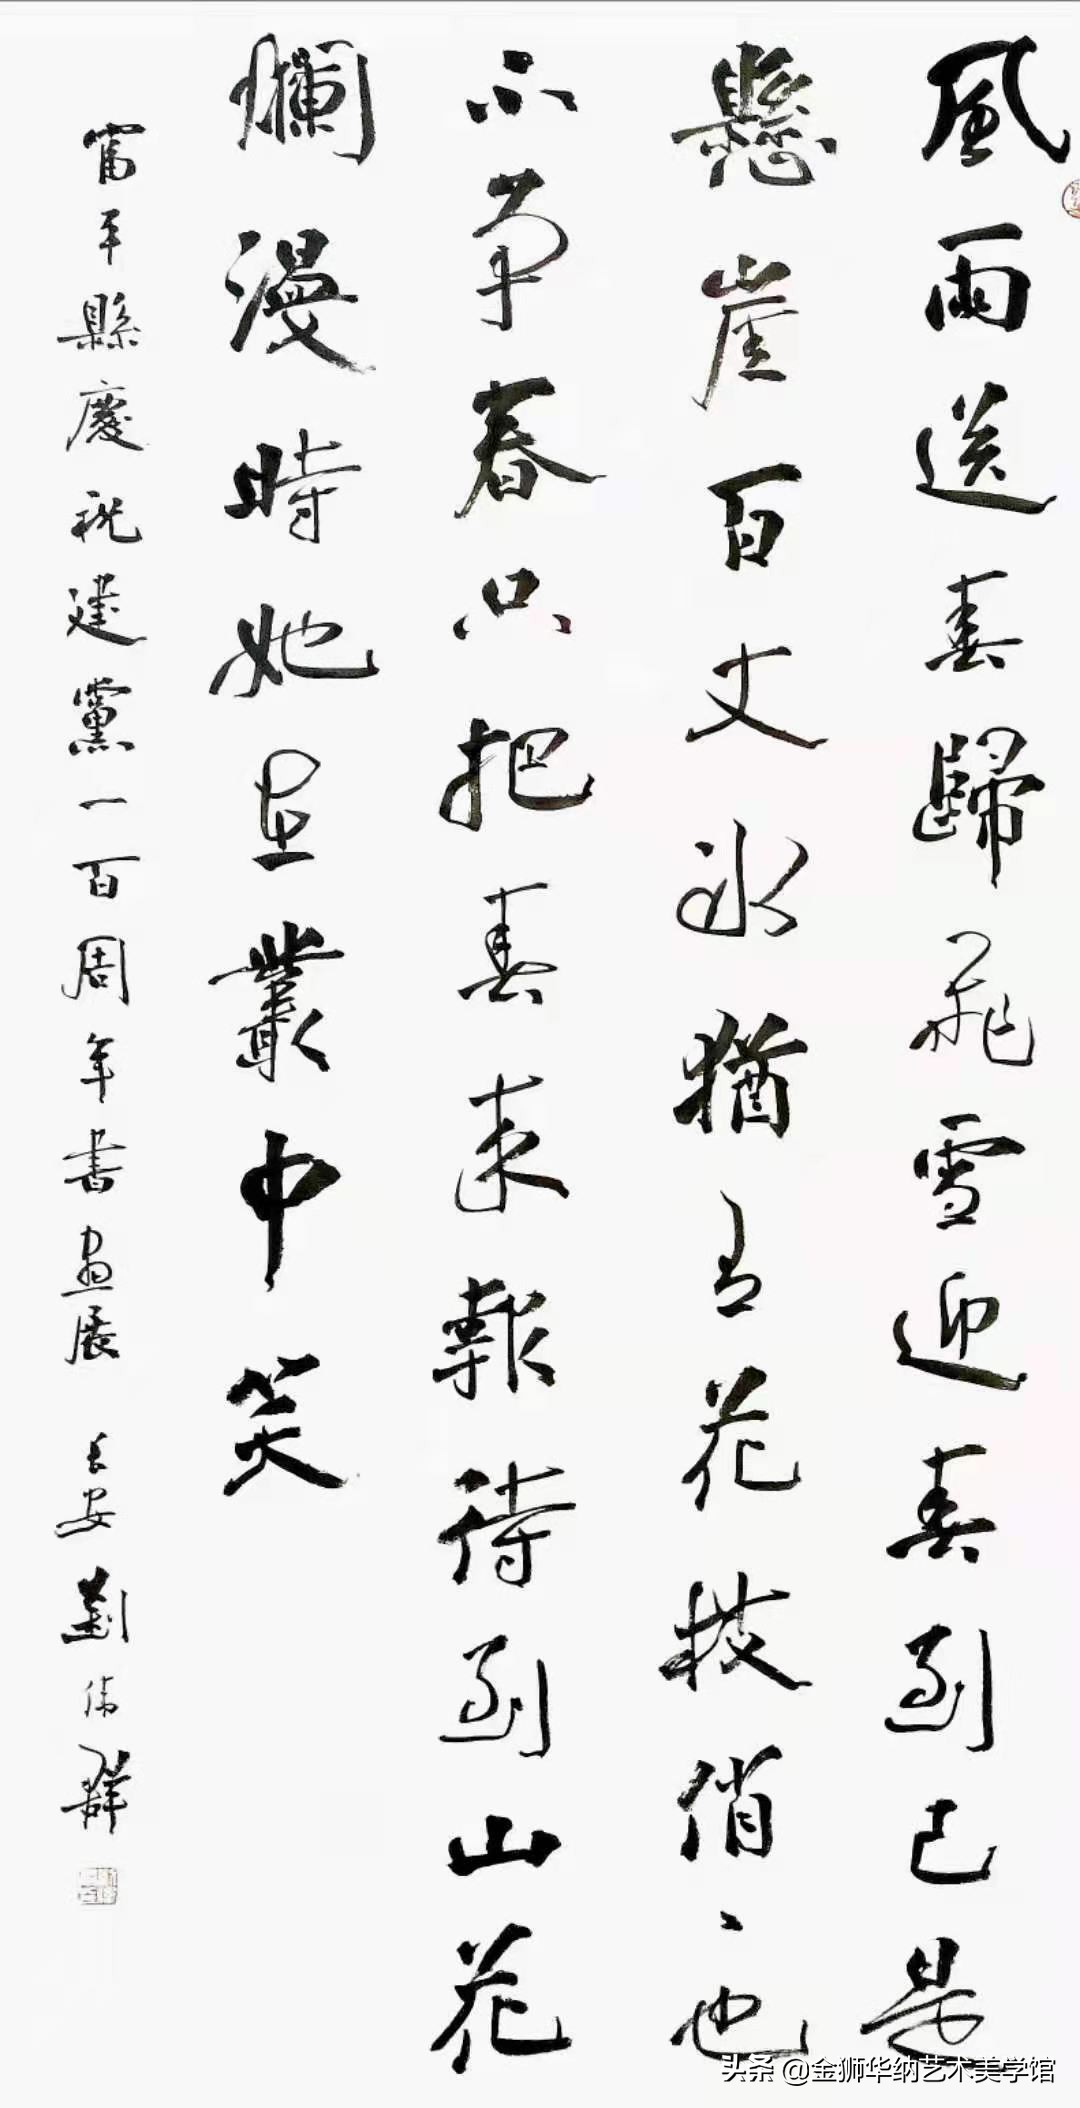 風雨送春歸飛雪迎春到已是
懸崖百丈冰猶有花枝俏〻也
不争春只把春来報待到山花
爛漫時她在叢中笑
富平縣慶祝建黨一百周年書画展 長安劉偉群
头条 @金狮华纳艺术美学馆